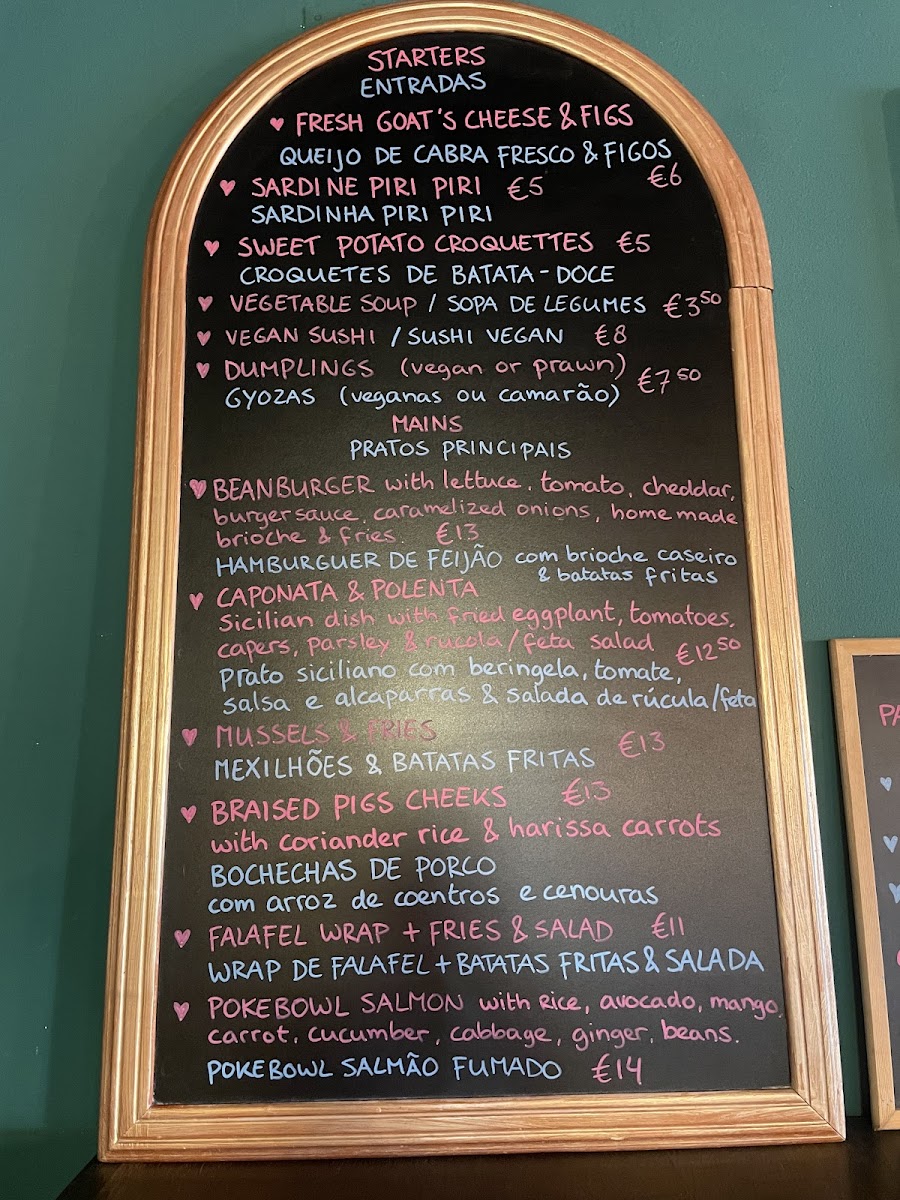 STARTERS
ENTRADAS
♥ FRESH GOAT'S CHEESE & FIGS
QUEIJO DE CABRA FRESCO & FIGOS
€6
♥ SARDINE PIRI PIRI €5
SARDINHA PIRI PIRI
♥ SWEET POTATO CROQUETTES €5
CROQUETES DE BATATA-DOCE
♥ VEGETABLE SOUP / SOPA DE LEGUMES €3⁵⁰
♥ VEGAN SUSHI / SUSHI VEGAN €8
♥ DUMPLINGS (vegan or prawn)
GYOZAS (veganas ou camarão) €7⁵⁰
MAINS
PRATOS PRINCIPAIS
♥ BEANBURGER with lettuce, tomato, cheddar,
burgersauce, caramelized onions, home made
brioche & fries. €13
HAMBURGUER DE FEIJÃO com brioche caseiro
& batatas fritas
♥ CAPONATA & POLENTA
Sicilian dish with fried eggplant, tomatoes,
capers, parsley & rucola/feta salad €12⁵⁰
Prato siciliano com beringela, tomate,
salsa e alcaparras & salada de rúcula/feta
♥ MUSSELS & FRIES
MEXILHÕES & BATATAS FRITAS €13
♥ BRAISED PIGS CHEEKS €13
with coriander rice & harissa carrots
BOCHECHAS DE PORCO
com arroz de coentros e cenouras
♥ FALAFEL WRAP + FRIES & SALAD €11
WRAP DE FALAFEL + BATATAS FRITAS & SALADA
♥ POKEBOWL SALMON with Rice, avocado, mango,
carrot, cucumber, cabbage, ginger, beans.
POKEBOWL SALMÃO FUMADO €14